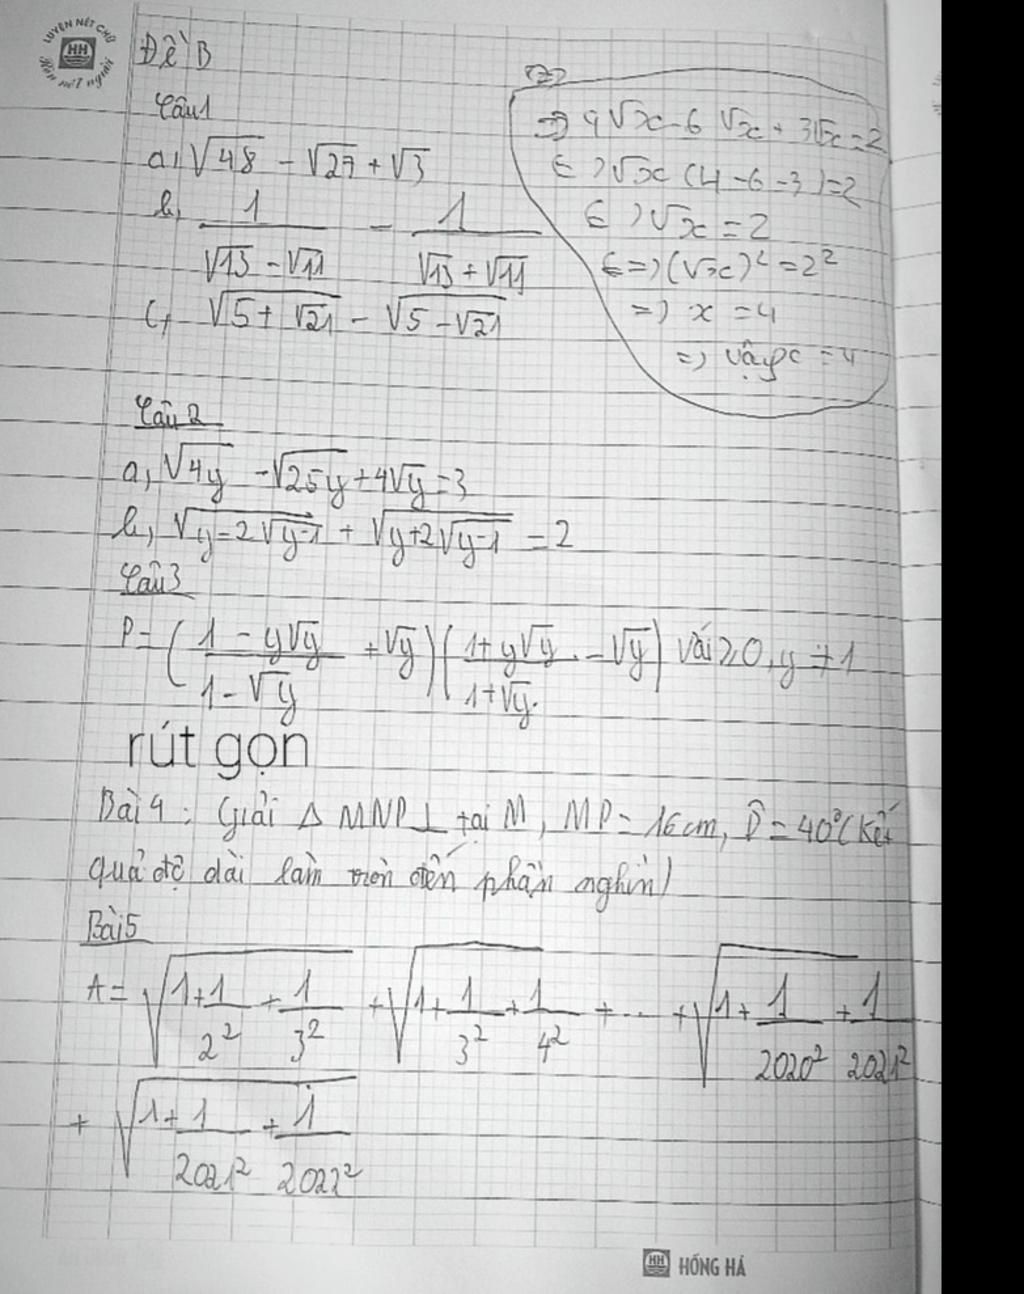 LUYỆN NÉT CHỮ
HH
Rèn nết người
Đề B
Câu 1
a, √48 - √27 + √3
b, 1/(√13 - √11) - 1/(√13 + √11)
c, √(5 + √21) - √(5 - √21)
=> 4√x - 6√x + 3√x = 2
<=> √x (4 - 6 - 3) = 2
<=> √x = 2
<=> (√x)² = 2²
=> x = 4
=> vậy x = 4
Câu 2
a, √4y - √25y + 4√y = 3
b, √(y - 2√(y-1)) + √(y + 2√(y-1)) = 2
Câu 3
P = ((1 - y√y)/(1 - √y) + √y) ((1 + y√y)/(1 + √y) - √y) với ≥ 0, y ≠ 1
rút gọn
Bài 4: Giải Δ MNP ⊥ tại M, MP = 16cm, P̂ = 40° (Kết
quả độ dài làm tròn đến phần nghìn)
Bài 5
A = √(1 + 1/2² + 1/3²) + √(1 + 1/3² + 1/4²) + ... + √(1 + 1/2020² + 1/2021²)
+ √(1 + 1/2021² + 1/2022²)
HH HỒNG HÀ